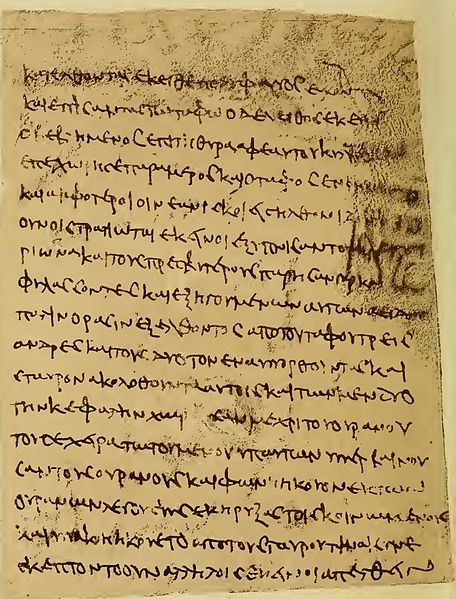 κατελθοντας εκειθεν πολυ φεγγος
και εγγισαντας τω ταφω ο δε λειθος εκει
επι τη θυρα αφ εαυτου
επεχωρησε παρα μερος και ο ταφος
και αμφοτεροι οι νεανισκοι εισηλθον
ουν οι στρατιωται εκεινοι εξυπνισαν το
ριωνα και τους πρεσβυτερους παρησαν γαρ
φυλασσοντες και εξηγουμενων αυτων
παλιν ορασιν εξελθοντος απο του ταφου τρεις
ανδρες και τους δυο τον ενα υπορθουντας και
σταυρον ακολοθουντα αυτοις και των μεν δυο
την κεφαλην μεχρι του ουρανου
του δε χειρατωτουμενου υπ αυτων υπερβαινου
σαν τους ουρανους και φωνην ηκουον εκ των
ουρανων λεγουσης εκηρυξας τοις κοινωμενοις
ηκουετο απο του σταυρου
σκεπτοντο ουν αλληλοις εκεινοι απελθειν